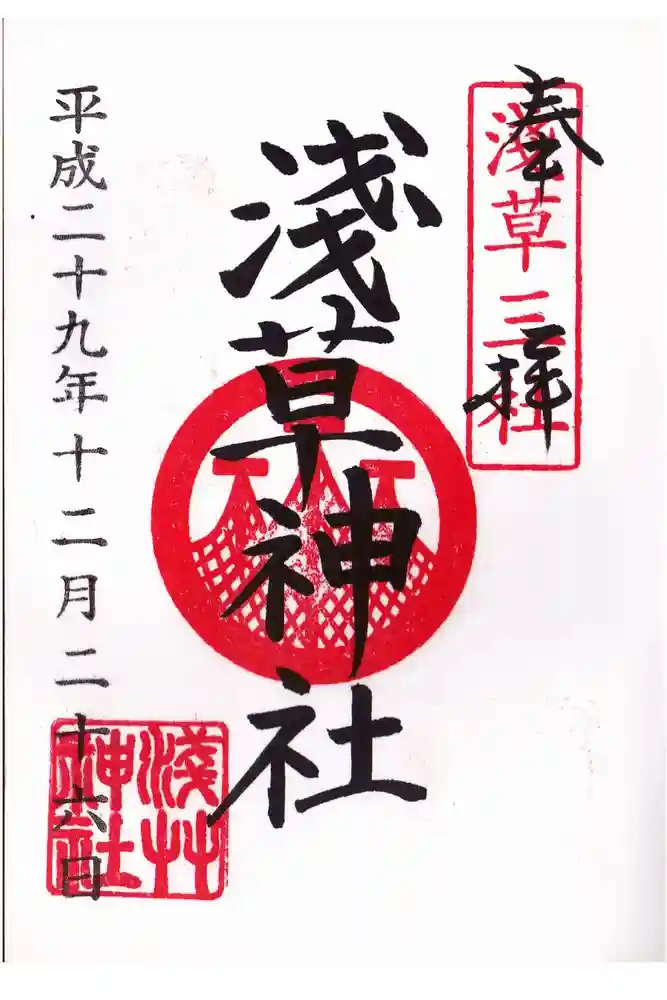 奉拝
淺草三社
浅草神社
平成二十九年十二月二十六日
淺草
神社